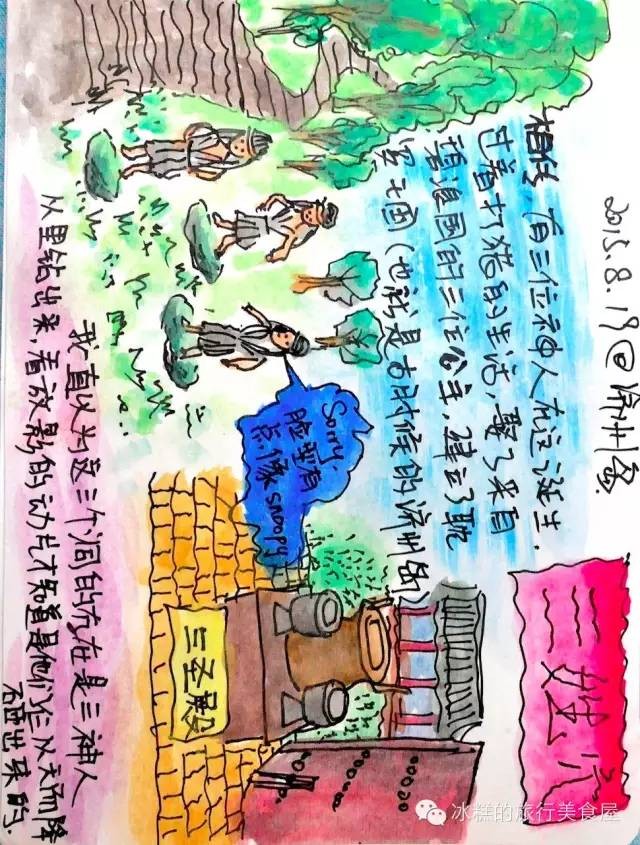 2015.8.19@济州岛
三姓穴
相传,有三位神人在这诞生,
过着打猎的生活,娶了来自
碧浪国的三位公主,建立了耽
罗国(也就是古时候的济州岛)
Sorry
脸型有
点像snoopy
三圣殿
我一直以为这三个洞的存在是三神人
从里钻出来,看放影的动片才知道是他们仨从天而降
出来的.
冰糕的旅行美食屋